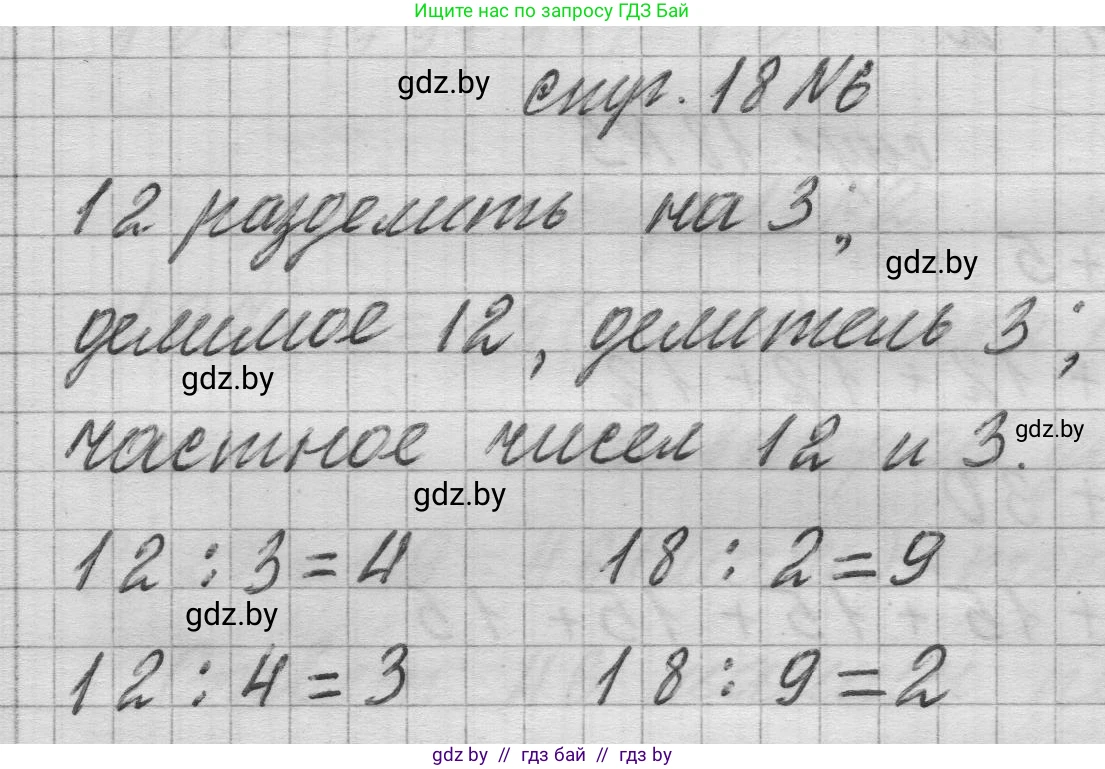 Ищите нас по запросу ГДЗ Бай
gdz.by стр. 18 №6
12 разделить на 3;
gdz.by
делимое 12, делитель 3;
gdz.by
частное чисел 12 и 3.
gdz.by
gdz.by
12 : 3 = 4 18 : 2 = 9
gdz.by
12 : 4 = 3 18 : 9 = 2
gdz.by // гдз бай // гдз by